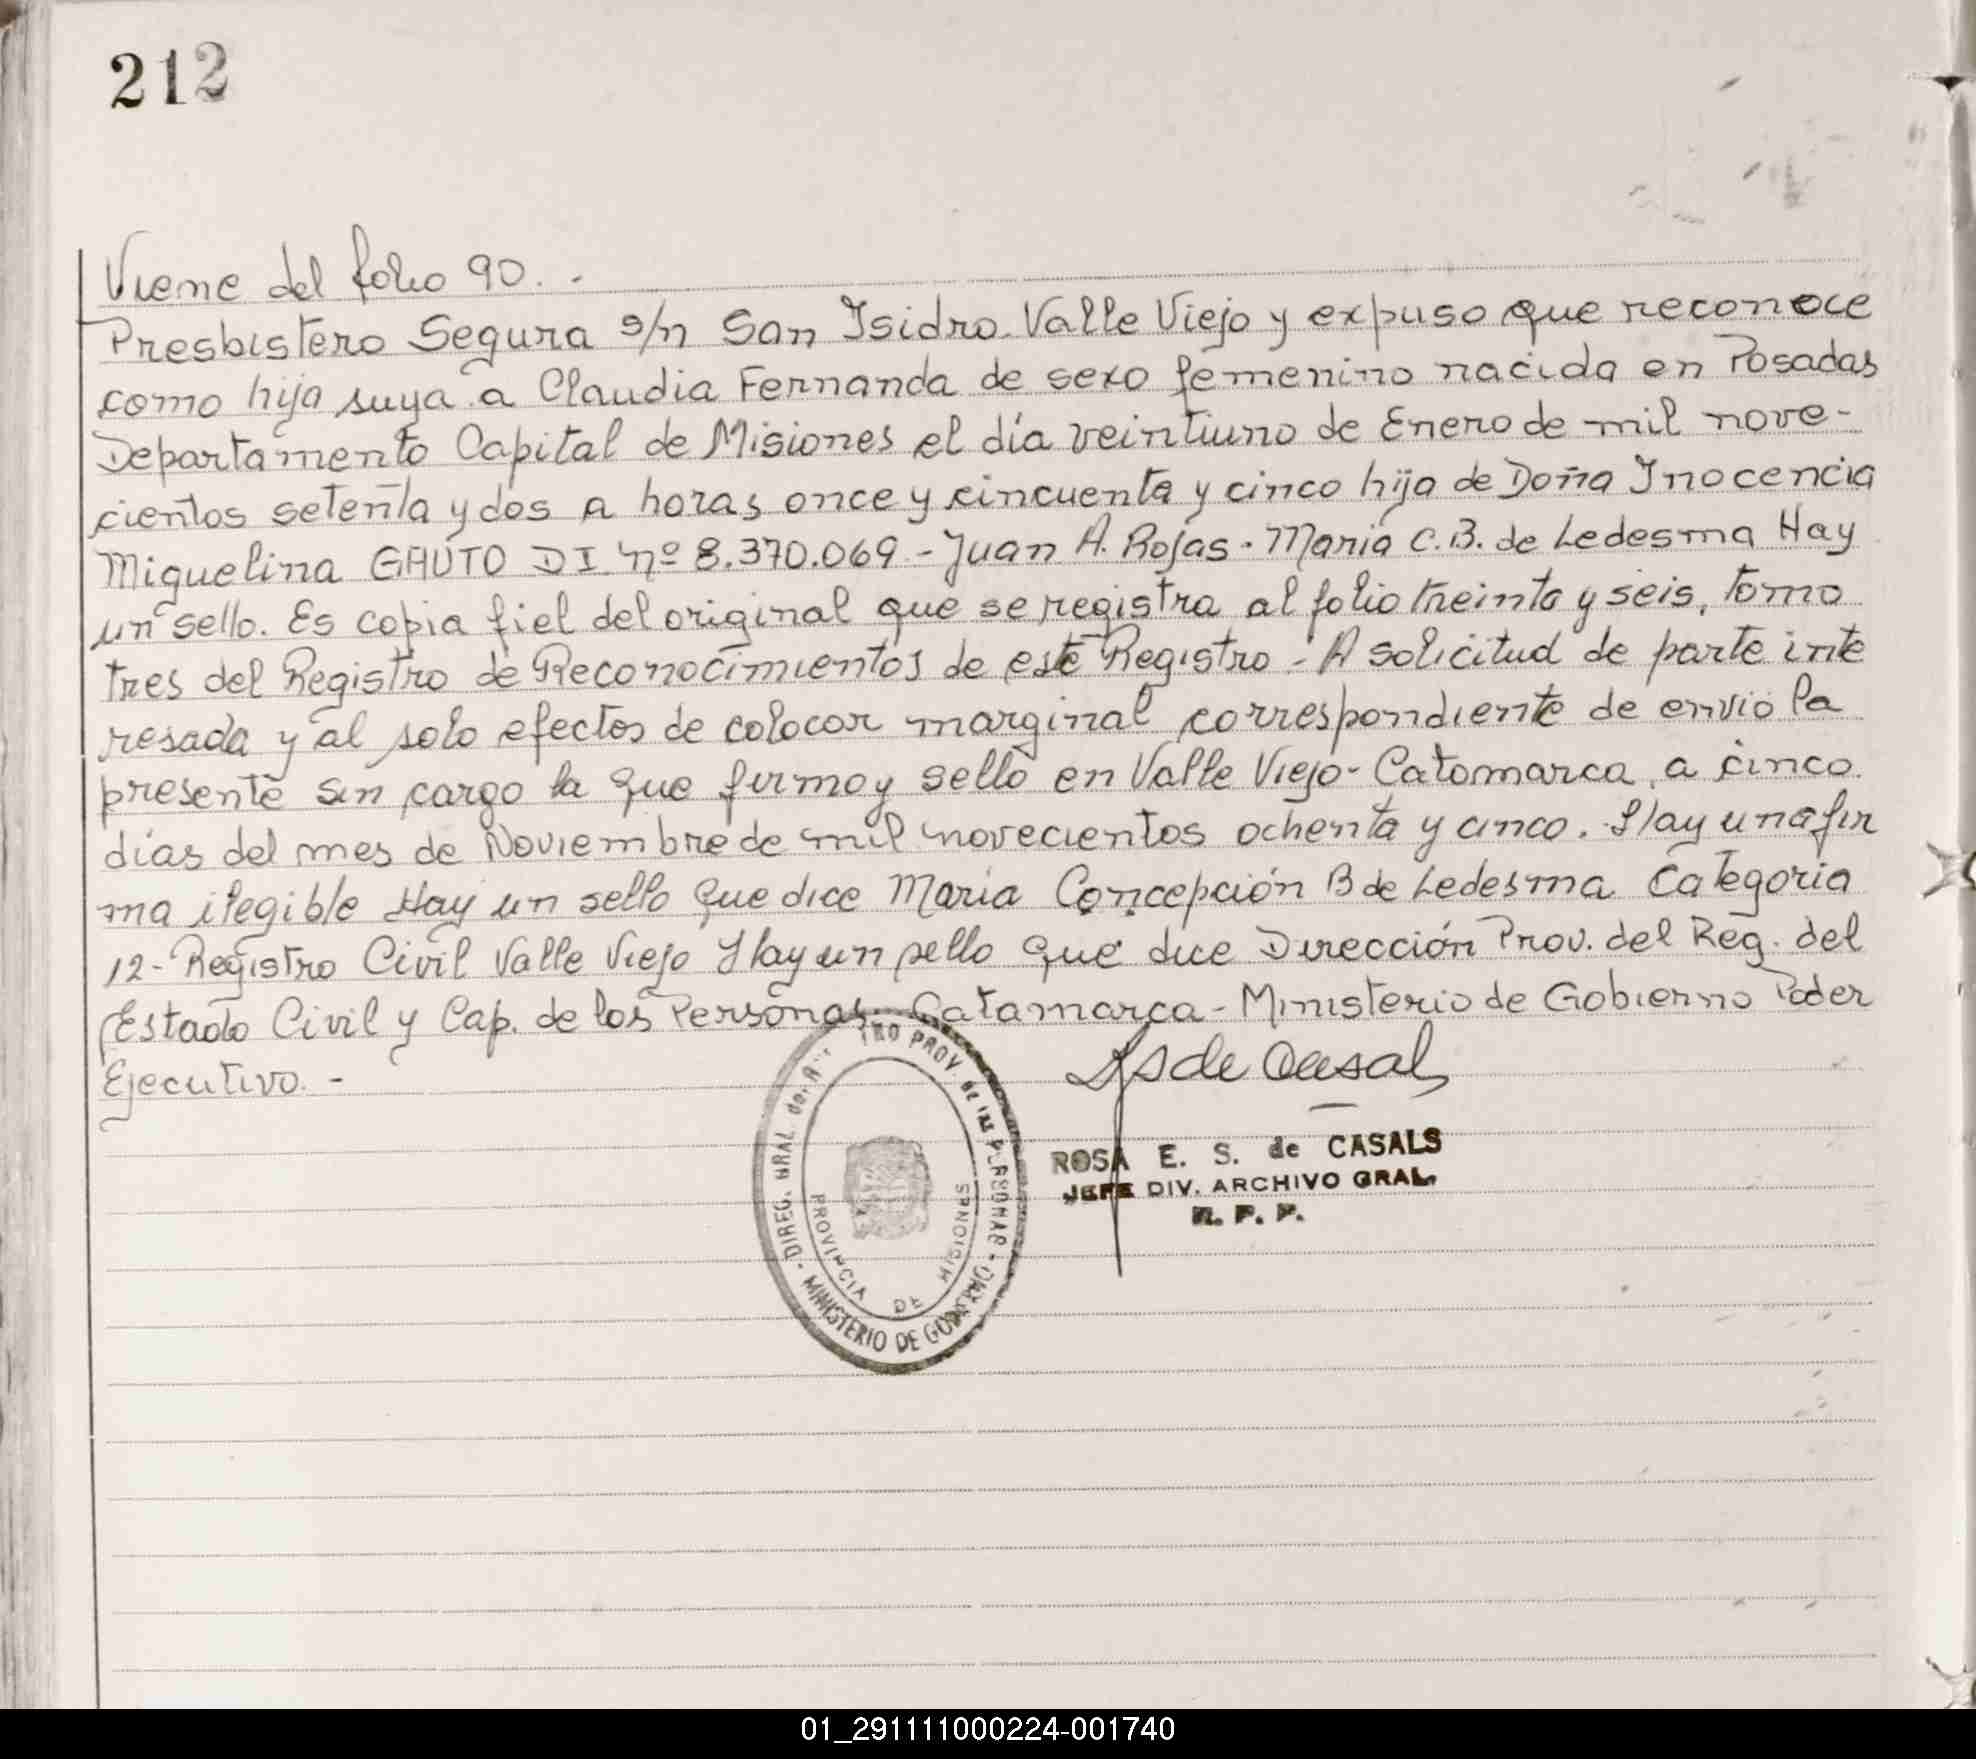 212
Viene del folio 90. -
Presbistero Segura s/n San Isidro Valle Viejo y expuso que reconoce
como hija suya a Claudia Fernanda de sexo femenino nacida en Posadas
Departamento Capital de Misiones el día veintiuno de Enero de mil nove-
cientos setenta y dos a horas once y cincuenta y cinco hija de Doña Inocencia
Miguelina GAUTO DI nº 8.370.069 - Juan A. Rojas. Maria C.B. de Ledesma Hay
un sello. Es copia fiel del original que se registra al folio treinta y seis, tomo
tres del Registro de Reconocimientos de este Registro - A solicitud de parte inte
resada y al solo efectos de colocar marginal correspondiente de envio la
presente sin cargo la que firmo y sello en Valle Viejo - Catamarca, a cinco
días del mes de Noviembre de mil novecientos ochenta y cinco. Hay una fir
ma ilegible Hay un sello que dice María Concepción B de Ledesma Categoria
12 - Registro Civil Valle Viejo Hay un sello que dice Dirección Prov. del Reg. del
Estado Civil y Cap. de las Personas. Catamarca - Ministerio de Gobierno Poder
Ejecutivo. -
S de Casals
ROSA E. S. de CASALS
JEFE DIV. ARCHIVO GRAL.
R. P. P.
DIREG. GRAL. del PROV DE LAS PERSONAS - MINISTERIO DE GOBIERNO -
PROVINCIA DE MISIONES
01_291111000224-001740